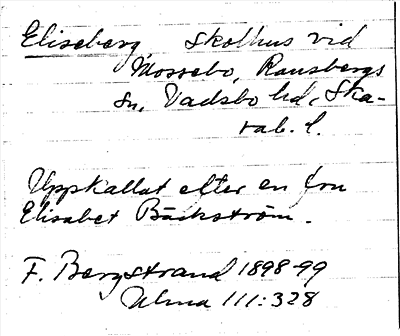 Eliseberg, skolhus vid
Mossebo, Ransbergs
sn, Vadsbo hd, Ska-
rab. l.
Uppkallat efter en fru
Elisabet Bäckström.
F. Bergstrand 1898-99
Ulma 111:328